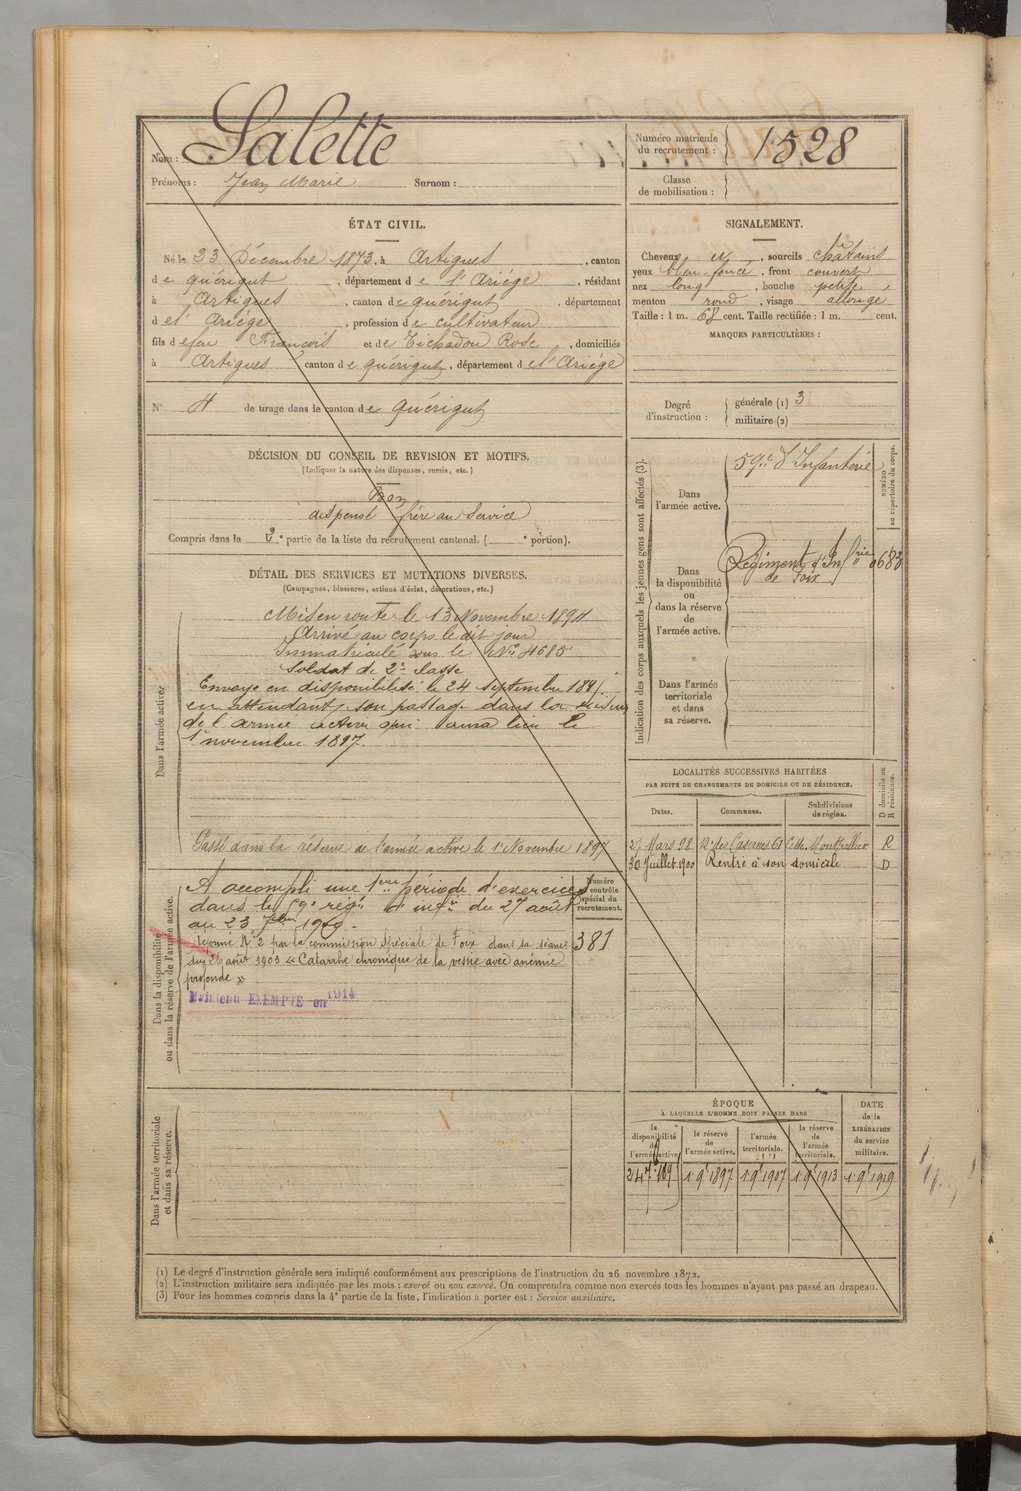 Nom : Salette
Prénoms : Jean Marie Surnom :
Numéro matricule du recrutement : 1528
Classe de mobilisation :
ÉTAT CIVIL.
Né le 23 Décembre 1873, à Artigues, canton
de quérigut, département de l'Ariége, résidant
à Artigues, canton de quérigut, département
de l'Ariége, profession de cultivateur
fils de feu François et de Tichadou Rose, domiciliés
à Artigues canton de quérigut, département de l'Ariége
N° 4 de tirage dans le canton de quérigut
SIGNALEMENT.
Cheveux id, sourcils châtains
yeux bleu foncé, front couvert
nez long, bouche petite
menton rond, visage allongé
Taille : 1 m. 68 cent. Taille rectifiée : 1 m. cent.
MARQUES PARTICULIÈRES :
Degré d'instruction : générale (1) 3
militaire (2)
DÉCISION DU CONSEIL DE REVISION ET MOTIFS.
(Indiquer la nature des dispenses, sursis, etc.)
Bon
dispensé frère au Service
Compris dans la 2e partie de la liste du recrutement cantonal. ( e portion).
DÉTAIL DES SERVICES ET MUTATIONS DIVERSES.
(Campagnes, blessures, actions d'éclat, décorations, etc.)
Dans l'armée active.
Mis en route le 13 Novembre 1894
Arrivé au corps le dit jour
Immatriculé sous le N° 4685
Soldat de 2e classe
Envoyé en disponibilité le 24 Septembre
en attendant son passage dans la réserve
de l'armée active qui aura lieu le
1er novembre 1897.
Passé dans la réserve de l'armée active le 1er Novembre 1897
Dans la disponibilité ou dans la réserve de l'armée active.
A accompli une 1ère période d'exercices
dans le 59e régt d'infie du 27 août
au 23 7bre
Réformé N° 2 par la commission spéciale de Foix dans sa séance
du 26 août 1903 « Catarrhe chronique de la vessie avec anémie
profonde »
Maintenu EXEMPTÉ en 1914
Numéro au contrôle spécial du recrutement.
381
Dans l'armée territoriale et dans sa réserve.
Indication des corps auxquels les jeunes gens sont affectés (3).
NUMÉRO au répertoire du corps.
Dans l'armée active.
59e d'Infanterie
Dans la disponibilité ou dans la réserve de l'armée active.
Régiment d'Infrie de Foix
0683
Dans l'armée territoriale et dans sa réserve.
LOCALITÉS SUCCESSIVES HABITÉES
PAR SUITE DE CHANGEMENTS DE DOMICILE OU DE RÉSIDENCE.
Dates. Communes. Subdivisions de région. D domicile ou R résidence.
Mars 98 R. des Casernes 61 Cette Montpellier R
30 Juillet 1900 Rentré à son domicile D
ÉPOQUE
À LAQUELLE L'HOMME DOIT PASSER DANS
la disponibilité de l'armée active.
la réserve de l'armée active.
l'armée territoriale.
la réserve de l'armée territoriale.
DATE de la LIBÉRATION du service militaire.
1 9e 1897 1 9e 1907 1 9e 1913 1 9e 1919
(1) Le degré d'instruction générale sera indiqué conformément aux prescriptions de l'instruction du 26 novembre 1872.
(2) L'instruction militaire sera indiquée par les mots : exercé ou non exercé. On comprendra comme non exercés tous les hommes n'ayant pas passé au drapeau.
(3) Pour les hommes compris dans la 4e partie de la liste, l'indication à porter est : Service auxiliaire.